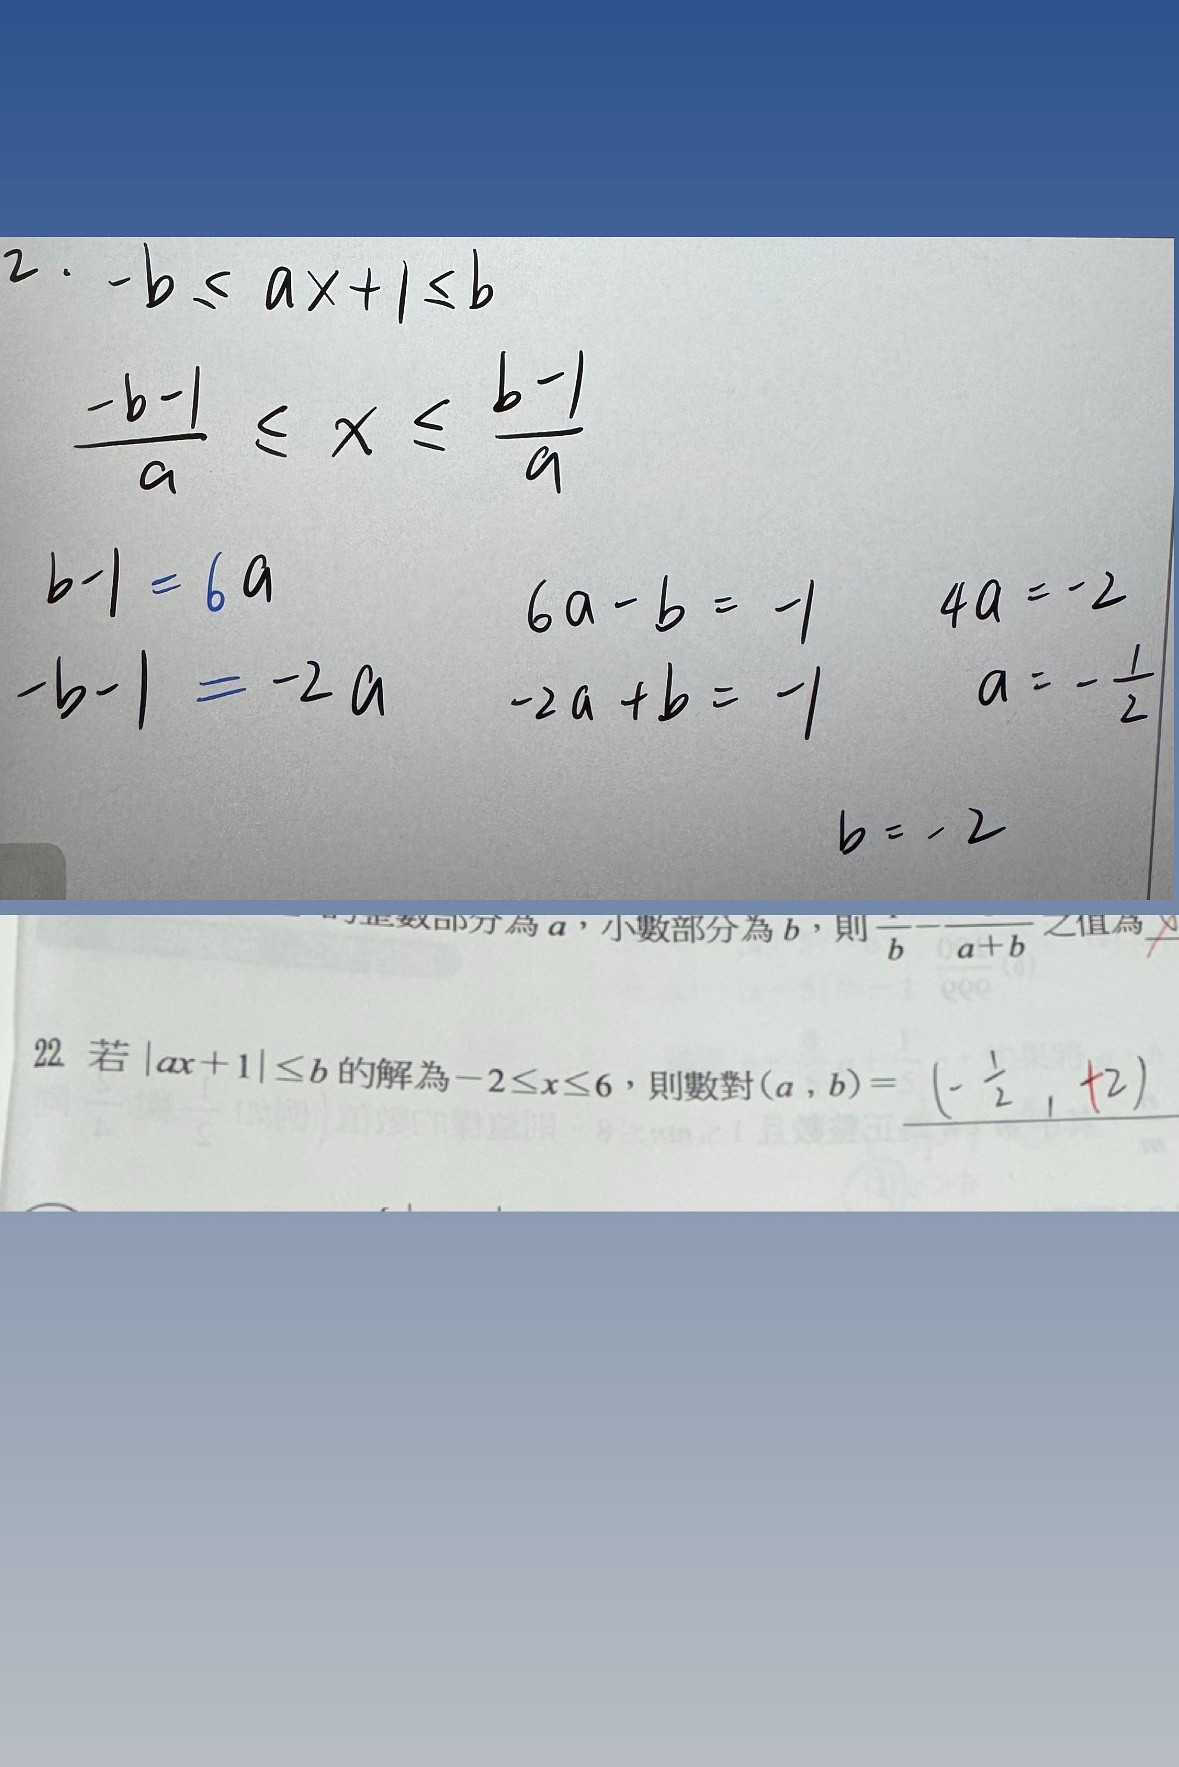 2. -b ≤ ax+1 ≤ b
\frac{-b-1}{a} ≤ x ≤ \frac{b-1}{a}
b-1 = 6a
-b-1 = -2a
6a-b = -1
-2a+b = -1
4a = -2
a = -\frac{1}{2}
b = -2
的整數部分為 a,小數部分為 b,則 \frac{1}{b} - \frac{}{a+b} 之值為
22 若 |ax+1| ≤ b 的解為 -2 ≤ x ≤ 6,則數對 (a , b) = (-\frac{1}{2} , +2)